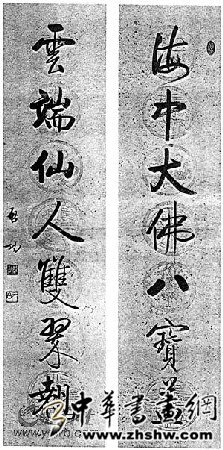 海中大佛八寶
雲端仙人雙翠翹
啓功
中華書畫網
www.zhshw.com